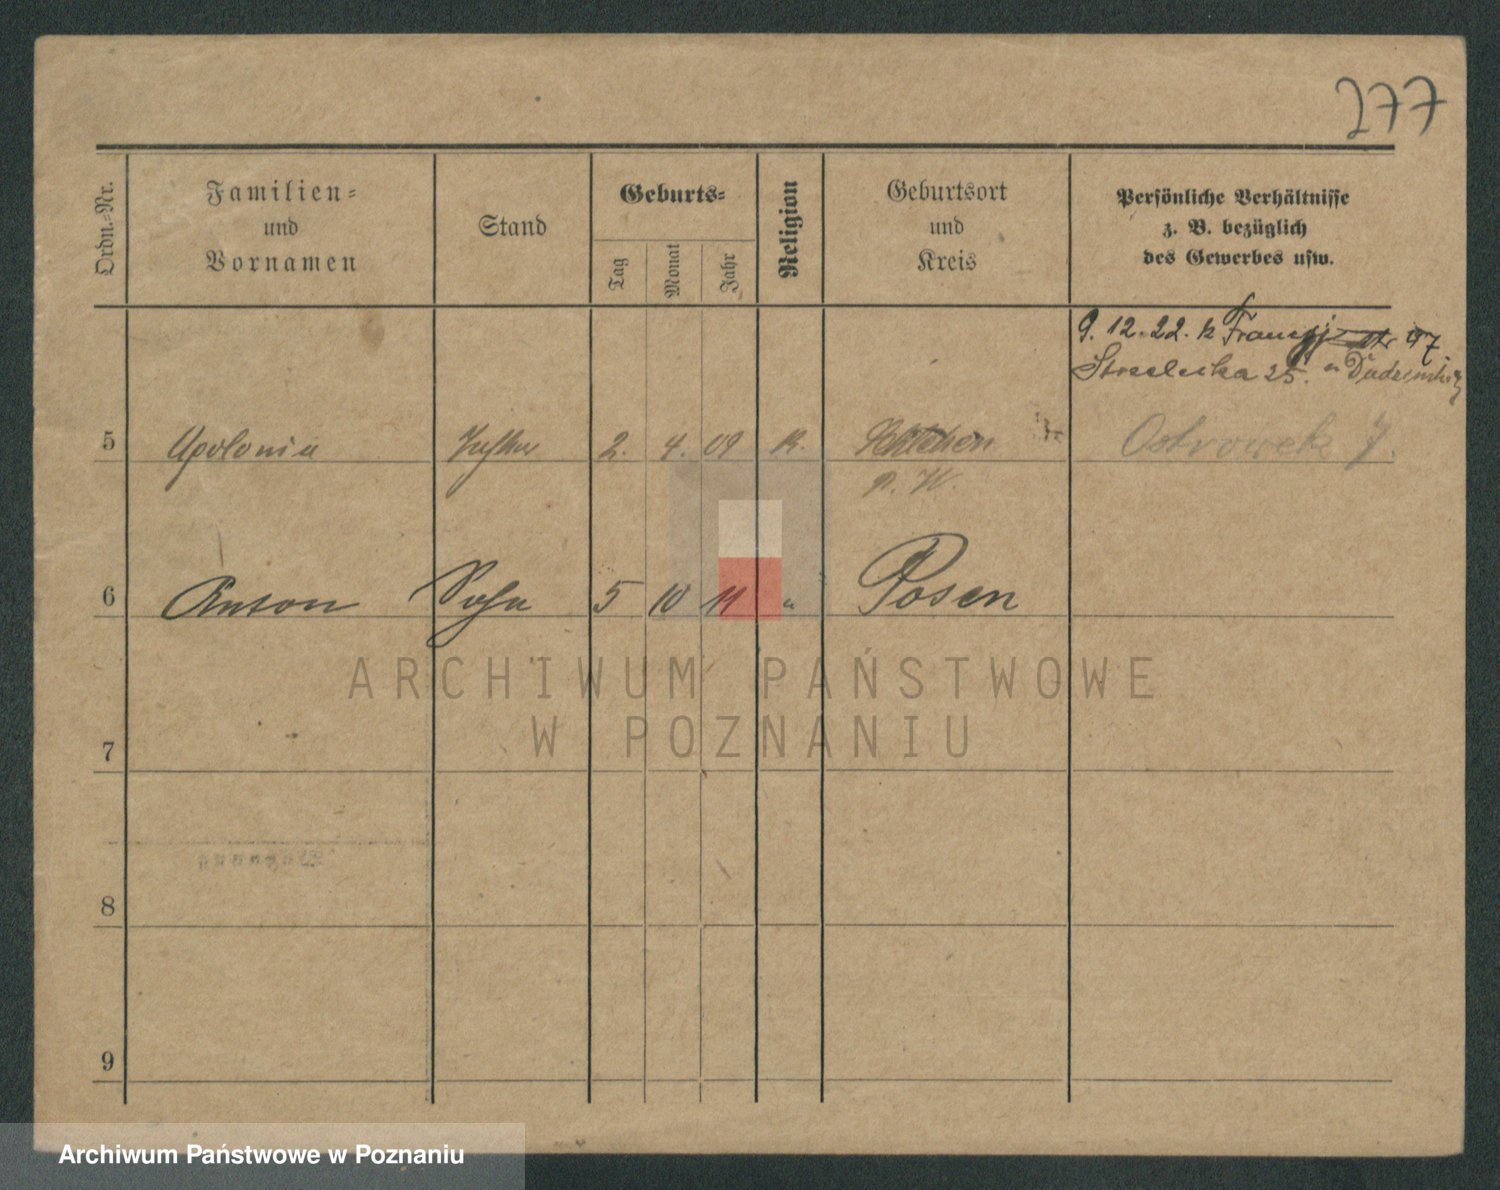 277
Ordn.-Nr.
Familien-
und
Vornamen
Stand
Geburts-
Tag
Monat
Jahr
Religion
Geburtsort
und
Kreis
Persönliche Verhältnisse
z. B. bezüglich
des Gewerbes usw.
9. 12. 22. k
Strzelecka 25.
5 Apolonia 2. 4. 09 K. Ostrowek 7.
6 Anton Sohn 5 10 11 " Posen
7
8
9
ARCHIWUM PAŃSTWOWE
W POZNANIU
Archiwum Państwowe w Poznaniu